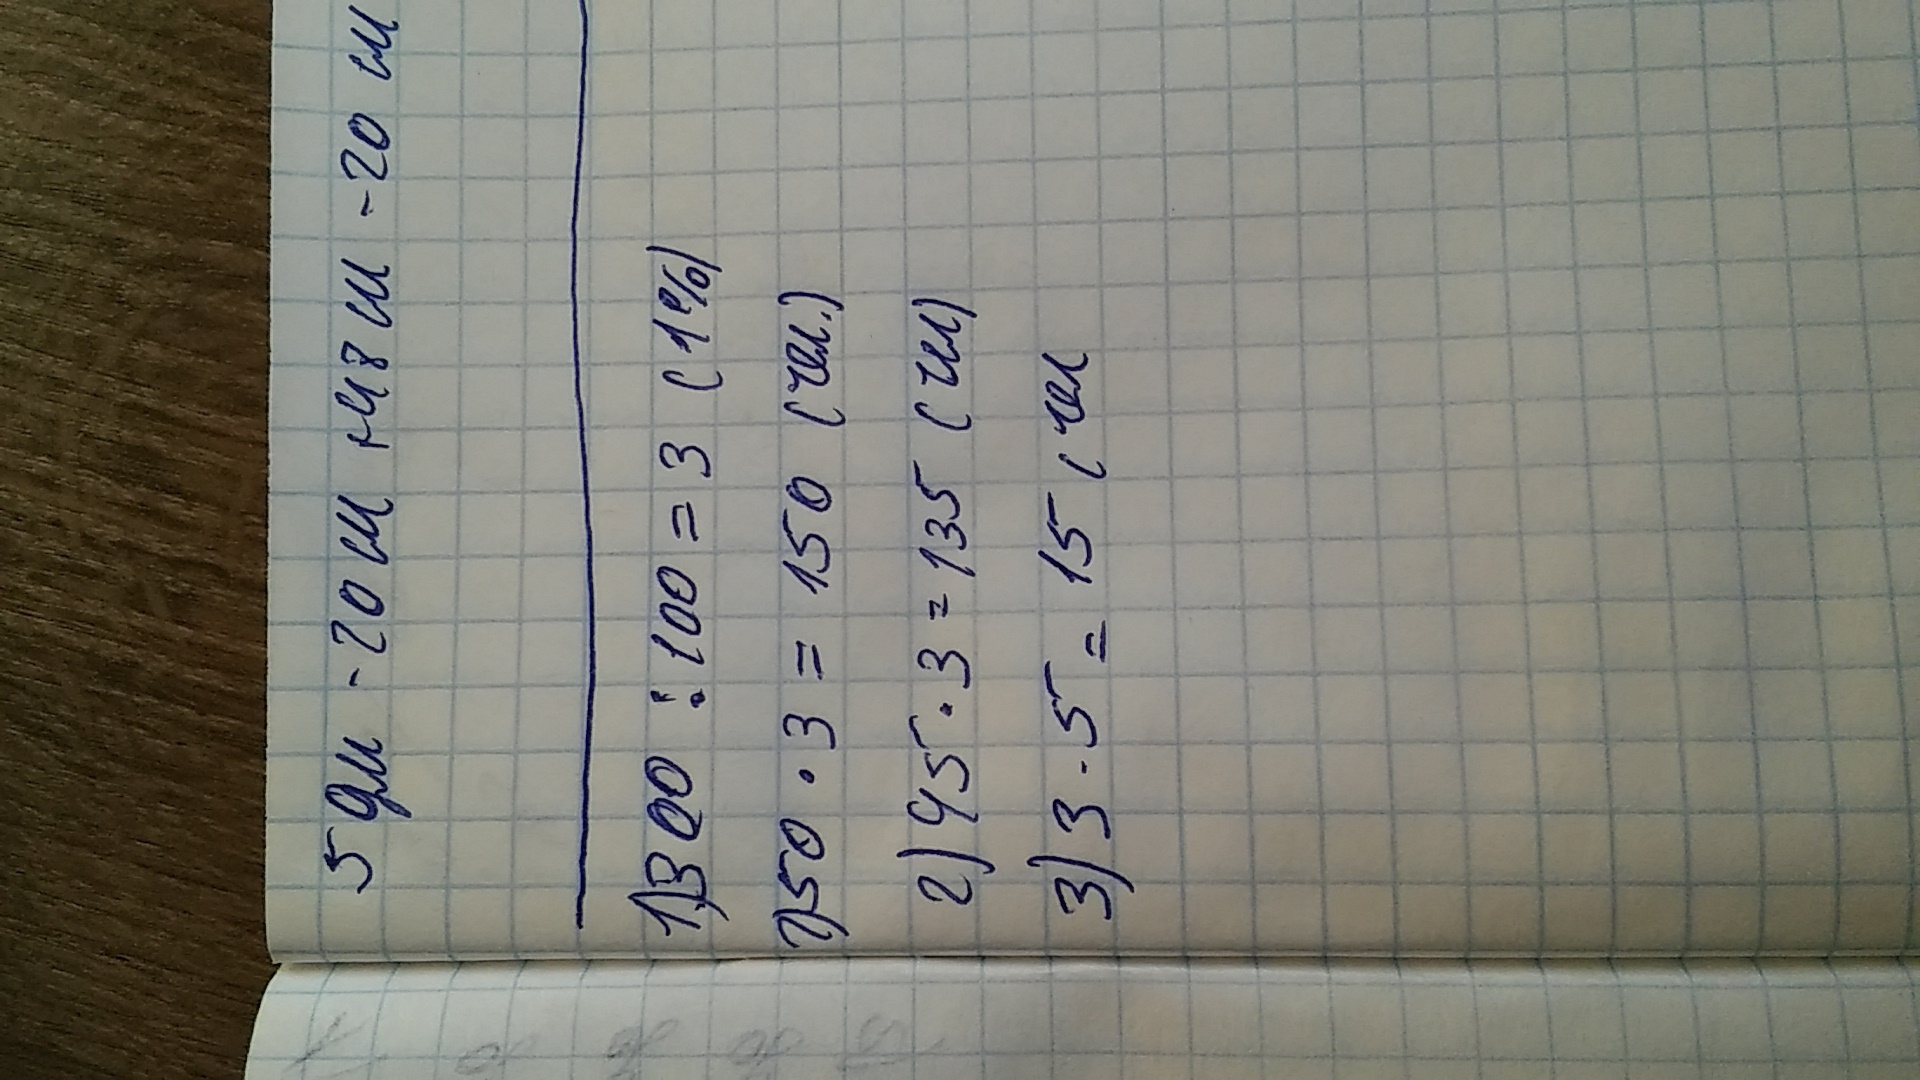 5 дм - 20 м м 8 м - 20 м
1) 300 : 100 = 3 (1%)
2) 50 · 3 = 150 (чел.)
2) 45 · 3 = 135 (чел)
3) 3 · 5 = 15 (чел